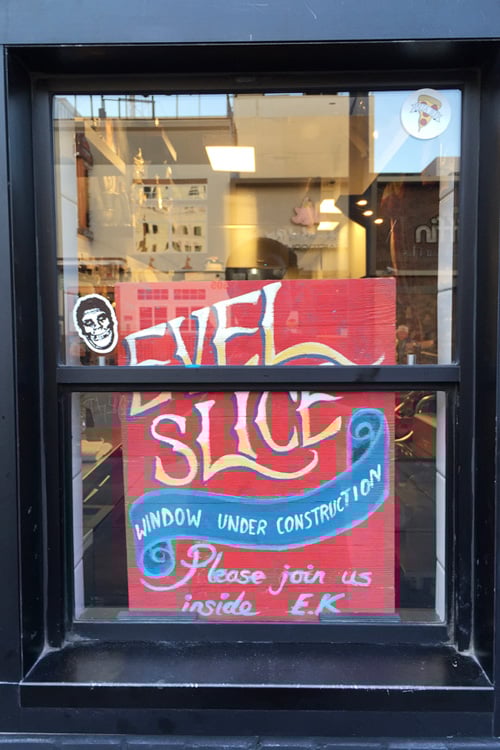 EVEL
SLICE
WINDOW UNDER CONSTRUCTION
Please join us
inside E.K